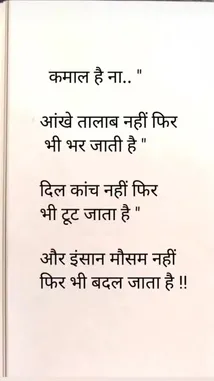 कमाल है ना.. "
आंखे तालाब नहीं फिर
भी भर जाती है "
दिल कांच नहीं फिर
भी टूट जाता है "
और इंसान मौसम नहीं
फिर भी बदल जाता है !!